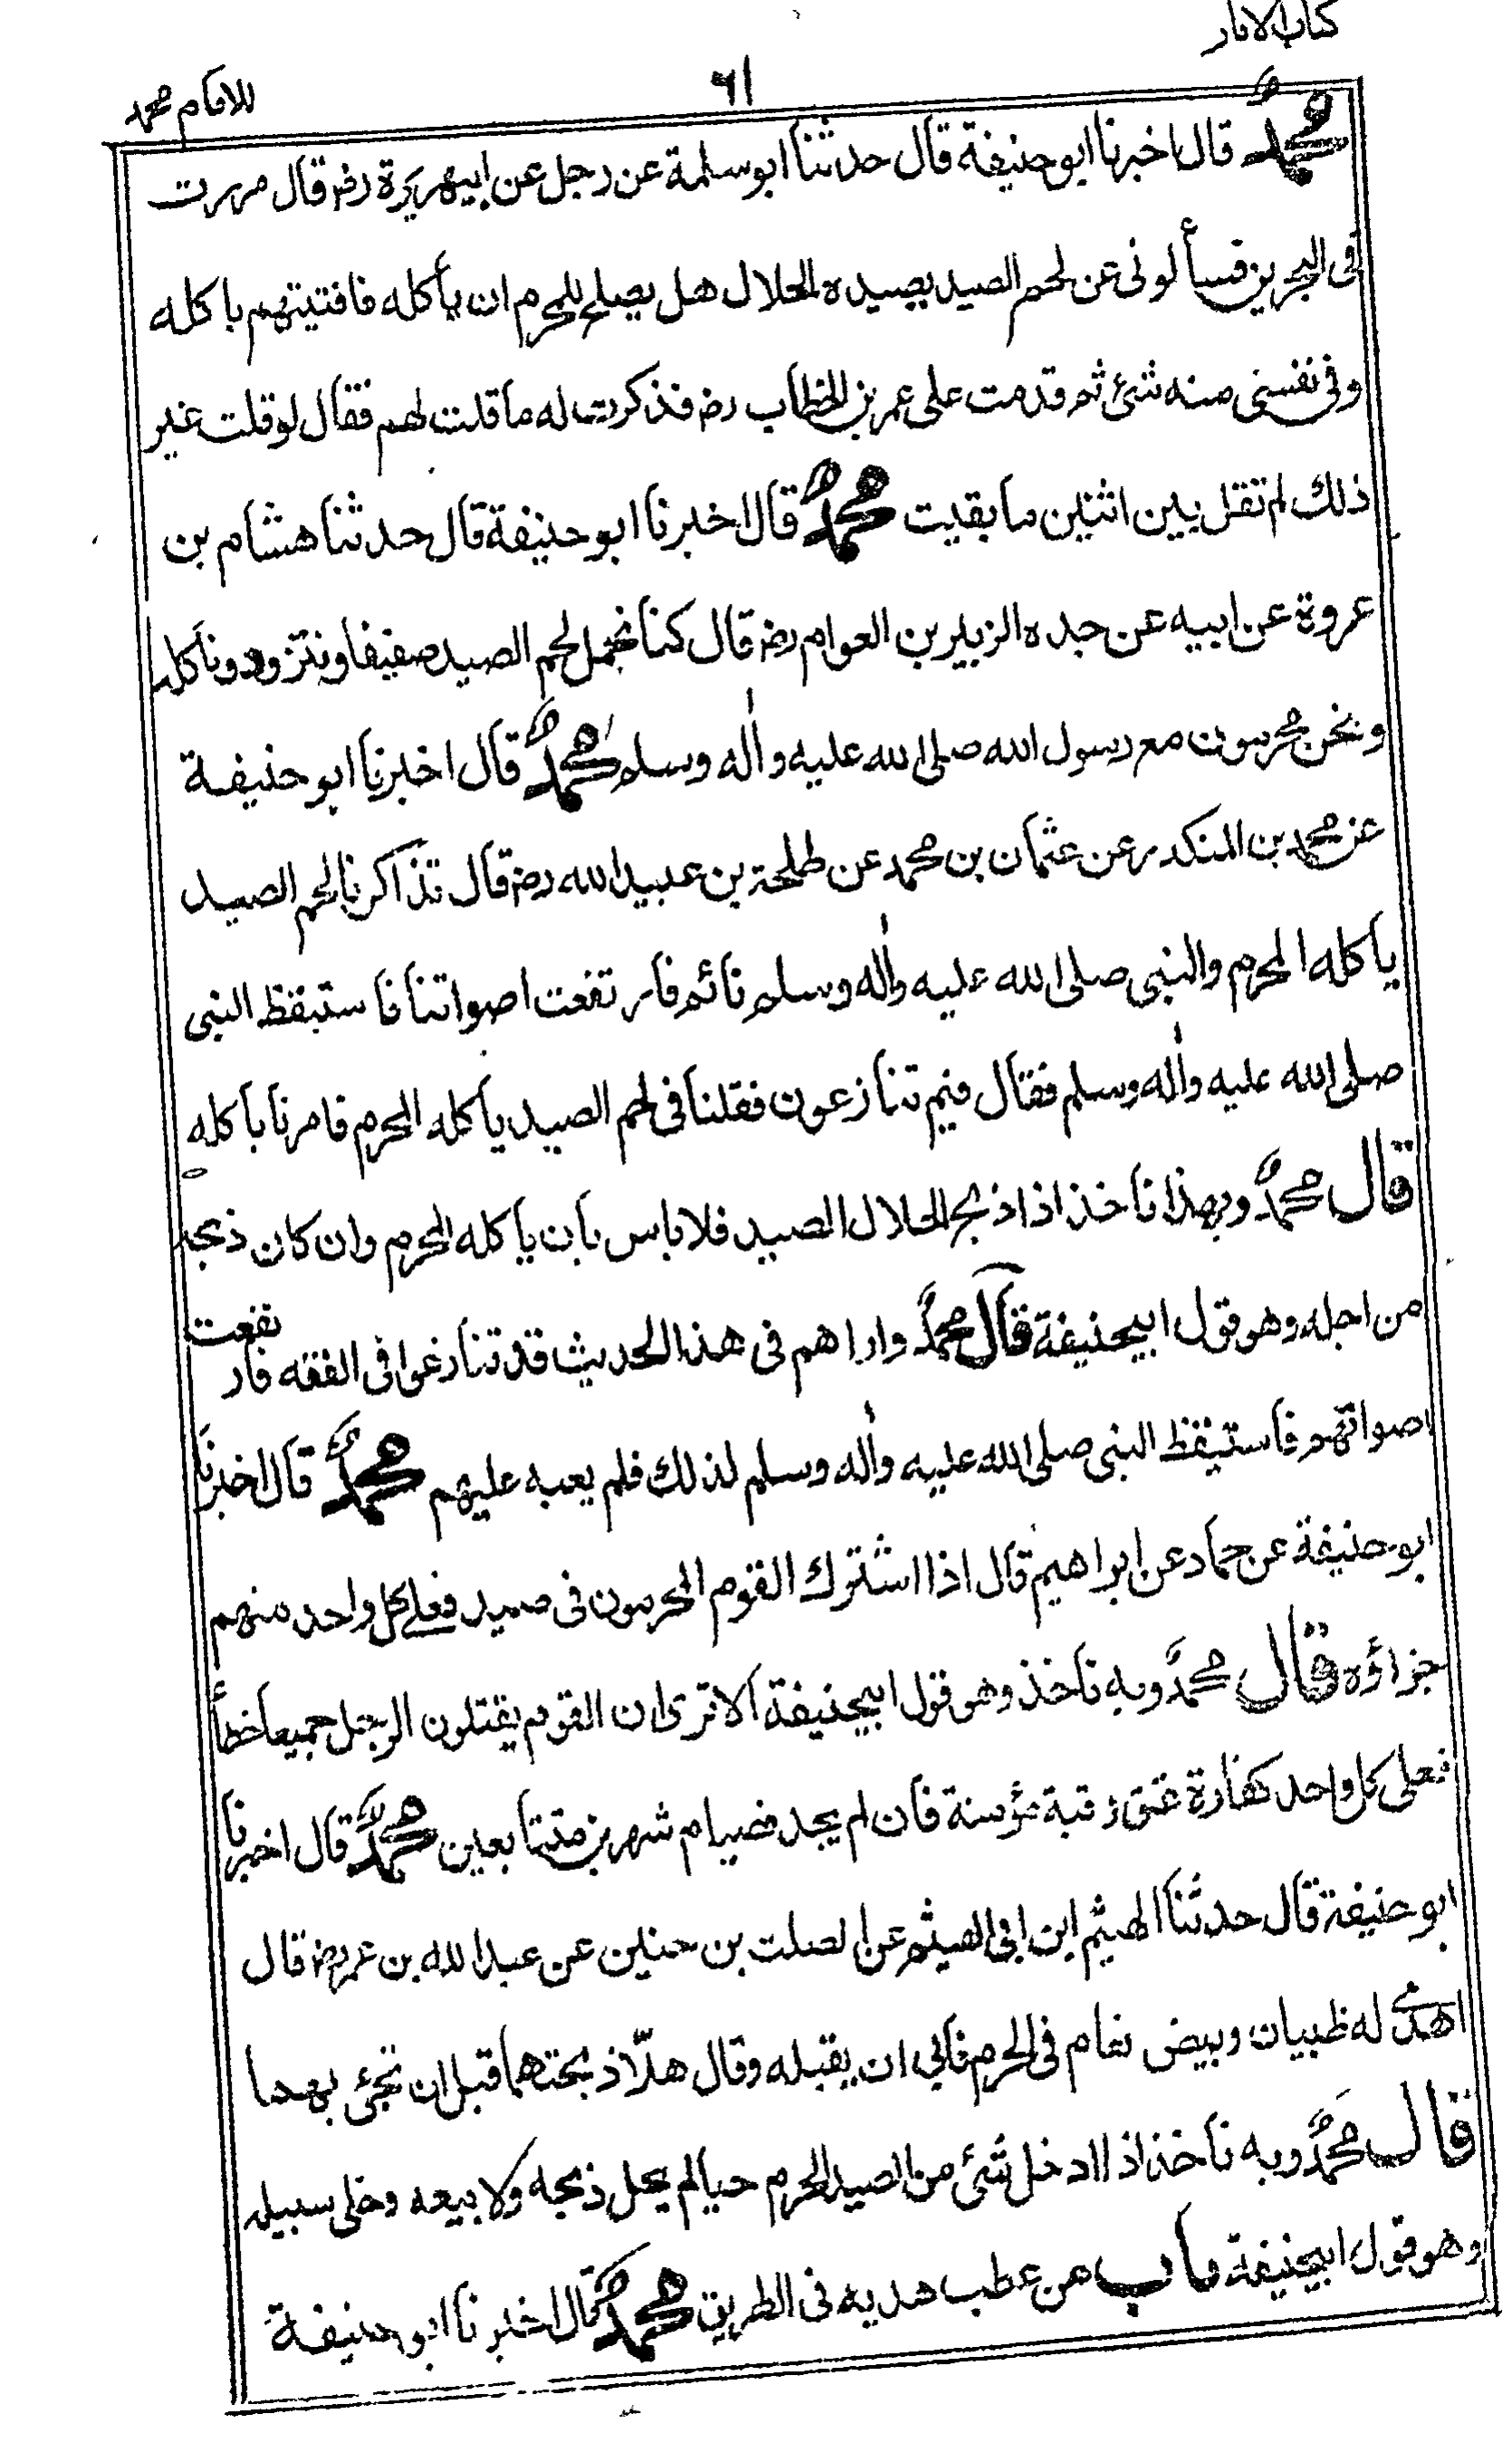 كتاب الاثار
٦١
للامام محمد
محمد قال اخبرنا ابو حنيفة قال حدثنا ابو سلمة عن رجل عن ابيهريرة رضـ قال مررت
فى البحرين فسألونى عن لحم الصيد يصيده الحلال هل يصلح للمحرم ان يأكله فافتيتهم باكله
وفى نفسى منه شئ ثم قدمت على عمر بن الخطاب رضـ فذكرت له ما قلت لهم فقال لو قلت غير
ذلك لم تقل بين اثنين ما بقيت محمد قال اخبرنا ابو حنيفة قال حدثنا هشام بن
عروة عن ابيه عن جده الزبير بن العوام رضـ قال كنا نحمل لحم الصيد صفيفا ونتزود وناكله
ونحن محرمون مع رسول الله صلى الله عليه واٰله وسلم محمد قال اخبرنا ابو حنيفة
عن محمد بن المنكدر عن عثمان بن محمد عن طلحة بن عبيد الله رضـ قال تذاكرنا لحم الصيد
ياكله المحرم والنبى صلى الله عليه واٰله وسلم نائم فارتفعت اصواتنا فاستيقظ النبى
صلى الله عليه واٰله وسلم فقال فيم تنازعون فقلنا فى لحم الصيد ياكله المحرم فامرنا باكله
قال محمد وبهذا ناخذ اذا ذبح الحلال الصيد فلا باس بان ياكله المحرم وان كان ذبحه
من اجله وهو قول ابيحنيفة قال محمد واراهم فى هذا الحديث قد تنازعوا فى الفقه فارتفعت
اصواتهم فاستيقظ النبى صلى الله عليه واٰله وسلم لذلك فلم يعبه عليهم محمد قال اخبرنا
ابو حنيفة عن حماد عن ابراهيم قال اذا اشترك القوم المحرمون فى صيد فعلى كل واحد منهم
جزاؤه قال محمد وبه ناخذ وهو قول ابيحنيفة الا ترى ان القوم يقتلون الرجل جميعا خطأ
فعلى كل واحد كفارة عتق رقبة مؤمنة فان لم يجد فصيام شهرين متتابعين محمد قال اخبرنا
ابو حنيفة قال حدثنا الهيثم ابن ابى الهيثم عن الصلت بن حنين عن عبد الله بن عمر رضـ قال
اهدى له ظبيان وبيض نعام فى الحرم فابى ان يقبله وقال هلّا ذبحتهما قبل ان تجئ بهما
قال محمد وبه ناخذ اذا ادخل شئ من الصيد الحرم حيا لم يحل ذبحه ولا بيعه وخلى سبيله
وهو قول ابيحنيفة باب من عطب هديه فى الطريق محمد قال اخبرنا ابو حنيفة